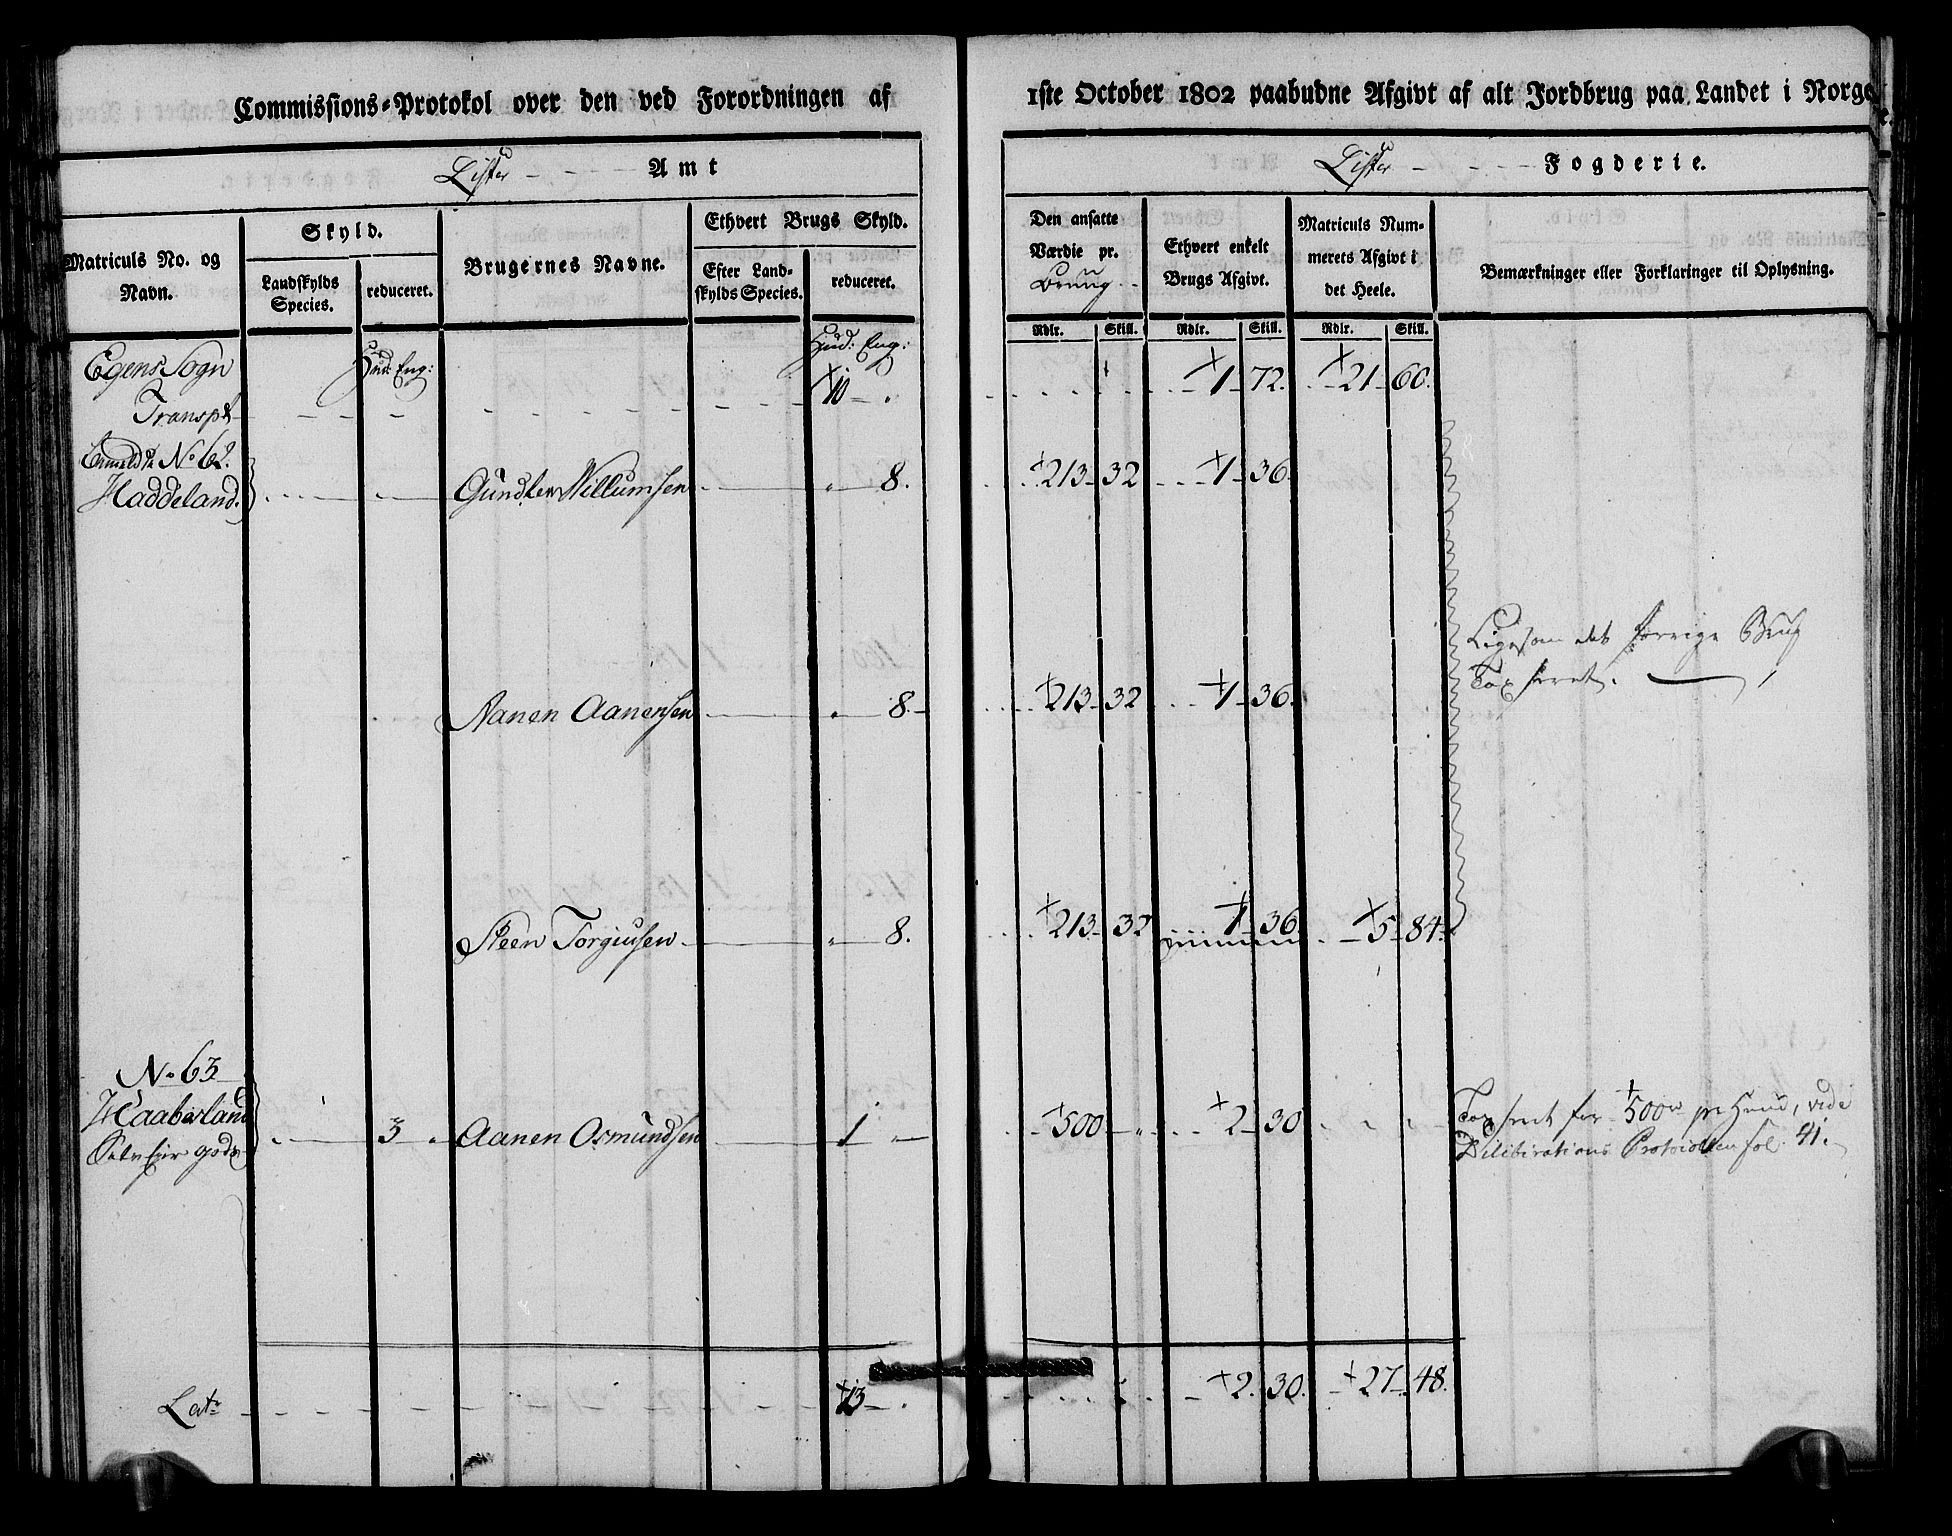 Commissions-Protokol over den ved Forordningen af 1ste October 1802 paabudne Afgivt af alt Jordbrug paa Landet i Norge
Lister Amt
Lister Fogderie.
Matriculs No. og Navn.
Skyld.
Landskylds Species.
reduceret.
Brugernes Navne.
Ethvert Brugs Skyld.
Efter Landskylds Species.
reduceret.
Den ansatte Værdie pr. Brug
Ethvert enkelt Brugs Afgivt.
Matriculs Nummerets Afgivt i det Heele.
Bemærkninger eller Forklaringer til Oplysning.
Rdlr. Skill. Rdlr. Skill. Rdlr. Skill.
Egens Sogn Hud: Eng: Hud: Eng:
Transpt 10 1 72. 21 60.
No 62.
Haddeland. Gundler Willumsen 8. 213 32 1 36.
Ligesom det forrige Brug
Taxseret.
Aanen Aanensen 8. 213 32 1 36.
Steen Torgiusen 8. 213 32 1 36 5 84.
No 63
Haaberland 3 Aanen Osmundsen 1 500 2 30 Taxseret for 500 pr Huud, vide
Deliberations Protocollen fol. 41.
Lats 13 2. 30. 27 48.